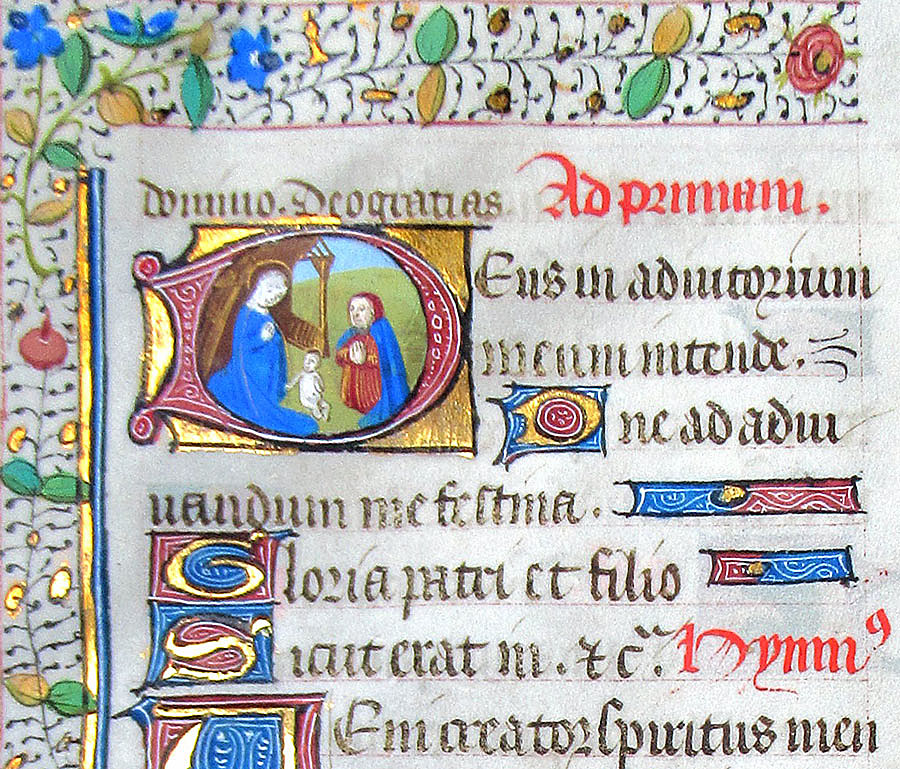 domino. Deo gratias Ad primam.
DEus in adiutorium
meum intende.
Dne ad adiu
uandum me festina.
Gloria patri et filio
Sicut erat in. & c̃. Hymn9
VEni creator spiritus men